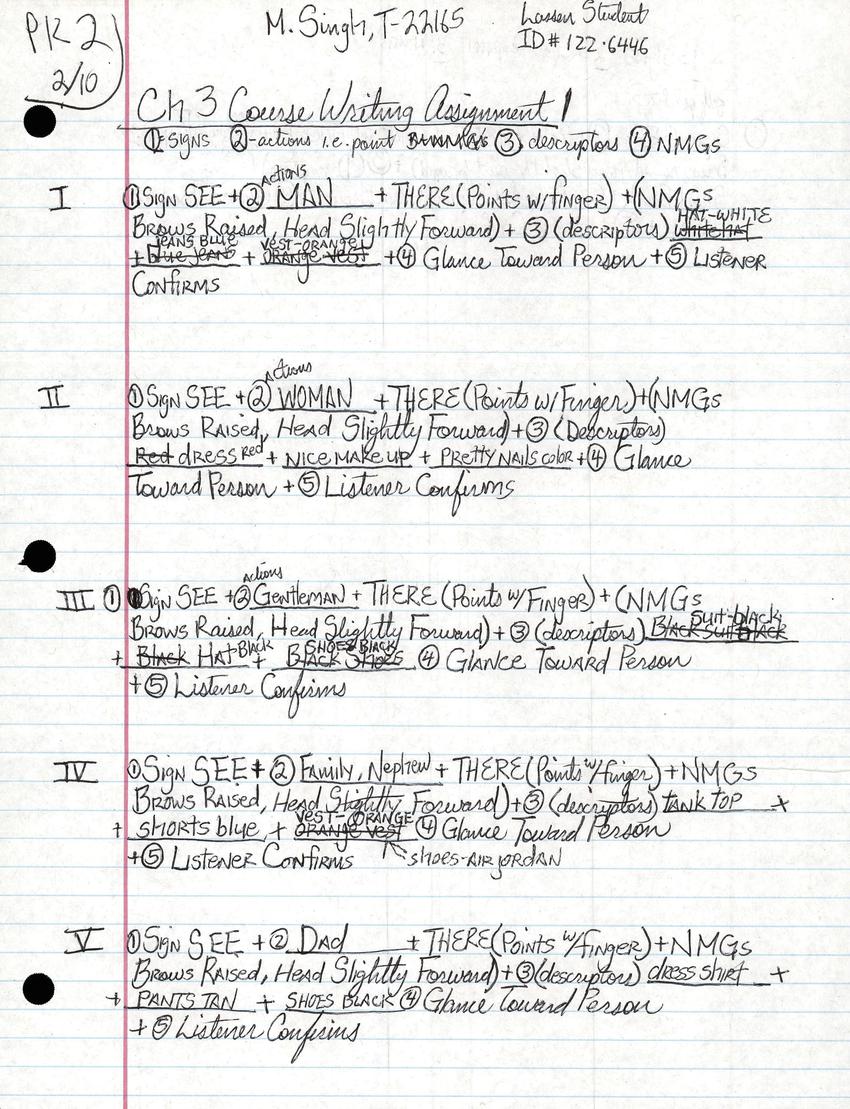 PR 2
2/10
M. Singh, T-22165
Lassen Student
ID# 122-6446
Ch 3 Course Writing Assignment 1
①=SIGNS ②-actions i.e. point ③ descriptors ④ NMGs
Actions
I ① Sign SEE + ② MAN + THERE (Points w/finger) + (NMGs
HAT-WHITE
Brows Raised, Head Slightly Forward) + ③ (descriptors) white hat
JEANS BLUE VEST-ORANGE
+ blue jeans + ORANGE vest + ④ Glance Toward Person + ⑤ Listener
Confirms
Actions
II ① Sign SEE + ② WOMAN + THERE (Points w/ Finger) + (NMGs
Brows Raised, Head Slightly Forward) + ③ (Descriptors)
Red dress red + NICE MAKE UP + PRETTY NAILS COLOR + ④ Glance
Toward Person + ⑤ Listener Confirms
Actions
III ① Sign SEE + ② Gentleman + THERE (Points w/ Finger) + (NMGs
Suit-black
Brows Raised, Head Slightly Forward) + ③ (descriptors) Black Suit Black
SHOES BLACK
+ Black HAT BLACK + BLACK SHOES ④ Glance Toward Person
+ ⑤ Listener Confirms
IV ① Sign SEE + ② Family, Nephew + THERE (Points w/finger) + NMGs
Brows Raised, Head Slightly Forward) + ③ (descriptors) TANK TOP +
VEST-ORANGE
+ SHORTS blue, + ORANGE VEST ④ Glance Toward Person
+ ⑤ Listener Confirms SHOES-AIR JORDAN
V ① Sign SEE + ② DAD + THERE (Points w/finger) + NMGs
Brows Raised, Head Slightly Forward) + ③ (descriptors) dress shirt +
+ PANTS TAN + SHOES BLACK ④ Glance Toward Person
+ ⑤ Listener Confirms